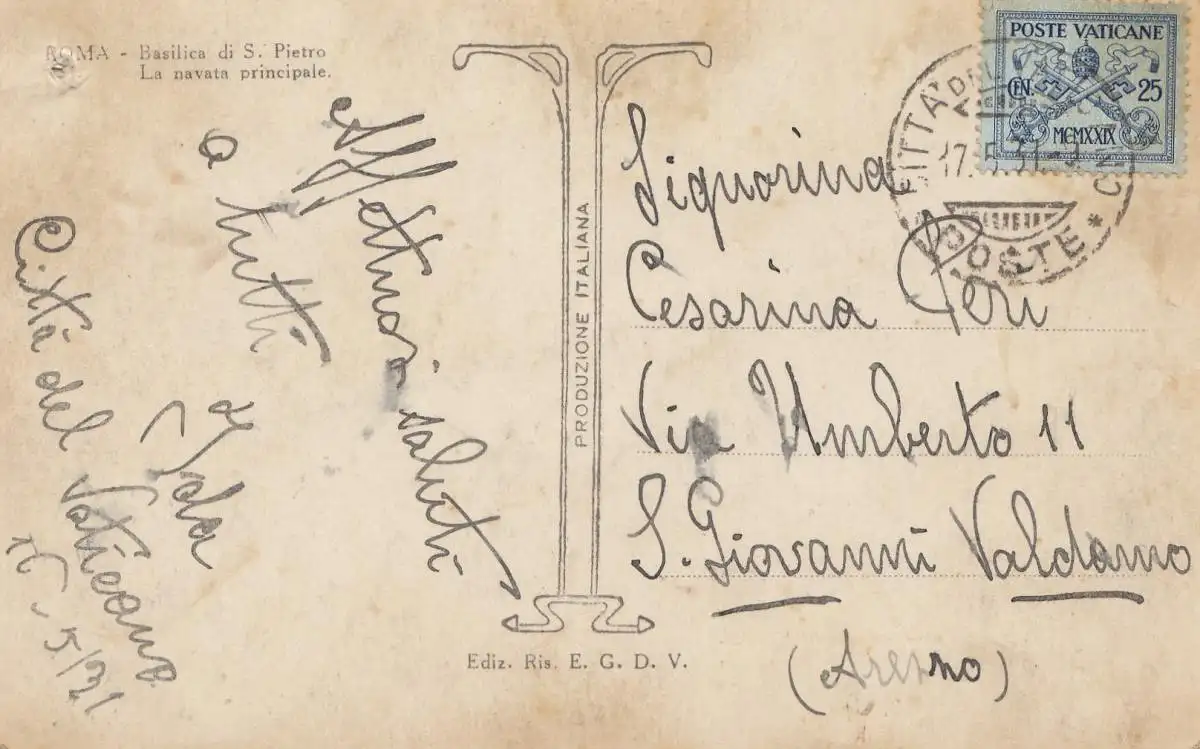 ROMA - Basilica di S. Pietro
La navata principale.
Affettuosi saluti
a tutti
Ida
Città del Vaticano
5/31
PRODUZIONE ITALIANA
Ediz. Ris. E. G. D. V.
POSTE VATICANE
CEN. 25
MCMXXIX
CITTÀ DEL VATICANO
17.5.31
POSTE *
Signorina
Cesarina Peri
Via Umberto 11
S. Giovanni Valdarno
(Arezzo)